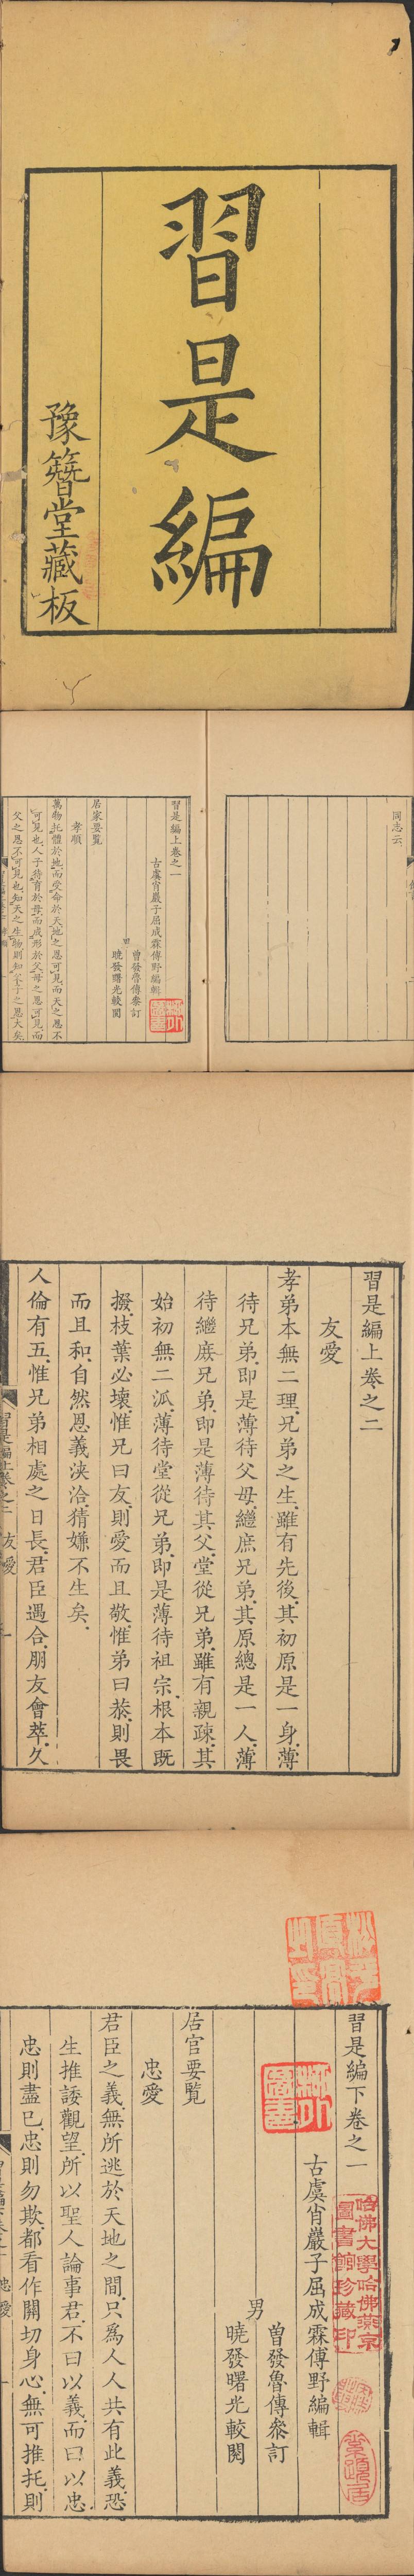 習是編
豫簪堂藏板
同志云
習是編上卷之一
古虞肖巖子屈成霖傅野編輯
男
曾發魯傳叅訂
曉發曙光較閱
居家要覧
孝順
萬物托體於地而受命於天地之恩可見而天之恩不
可見也人子待育於母而成形於父母之恩可見而
父之恩不可見也知天之生物則知父子之恩大矣
習是編上卷之二
友愛
孝弟本無二理兄弟之生雖有先後其初原是一身薄
待兄弟即是薄待父母繼庶兄弟其原總是一人薄
待繼庶兄弟即是薄待其父堂從兄弟雖有親疎其
始初無二派薄待堂從兄弟即是薄待祖宗根本既
撥枝葉必壞惟兄曰友則愛而且敬惟弟曰恭則畏
而且和自然恩義浹洽猜嫌不生矣
人倫有五惟兄弟相處之日長君臣遇合朋友會萃久
習是編上卷之二
友愛
習是編下卷之一
古虞肖巖子屈成霖傅野編輯
男
曾發魯傳叅訂
曉發曙光較閱
居官要覧
忠愛
君臣之義無所逃於天地之間只爲人人共有此義恐
生推諉觀望所以聖人論事君不曰以義而曰以忠
忠則盡已忠則勿欺都看作關切身心無可推托則
忠愛
哈佛大學哈佛燕京
圖書館珍藏印